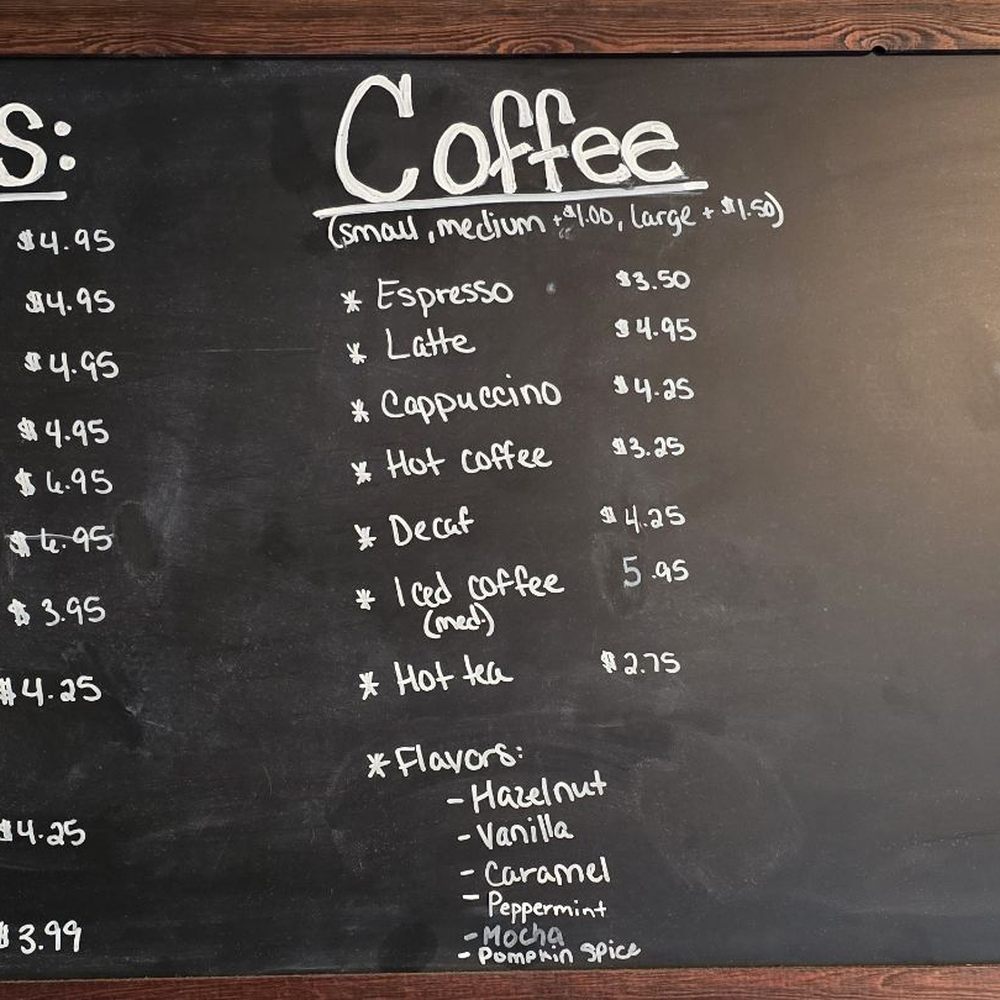 s:
$4.95
$4.95
$4.95
$4.95
$6.95
$6.95
$3.95
$4.25
$4.25
$3.99
Coffee
(small, medium +$1.00, large + $1.50)
* Espresso $3.50
* Latte $4.95
* Cappuccino $4.25
* Hot coffee $3.25
* Decaf $4.25
* Iced coffee 5.95
(med.)
* Hot tea $2.75
* Flavors:
- Hazelnut
- Vanilla
- Caramel
- Peppermint
- Mocha
- Pumpkin Spice